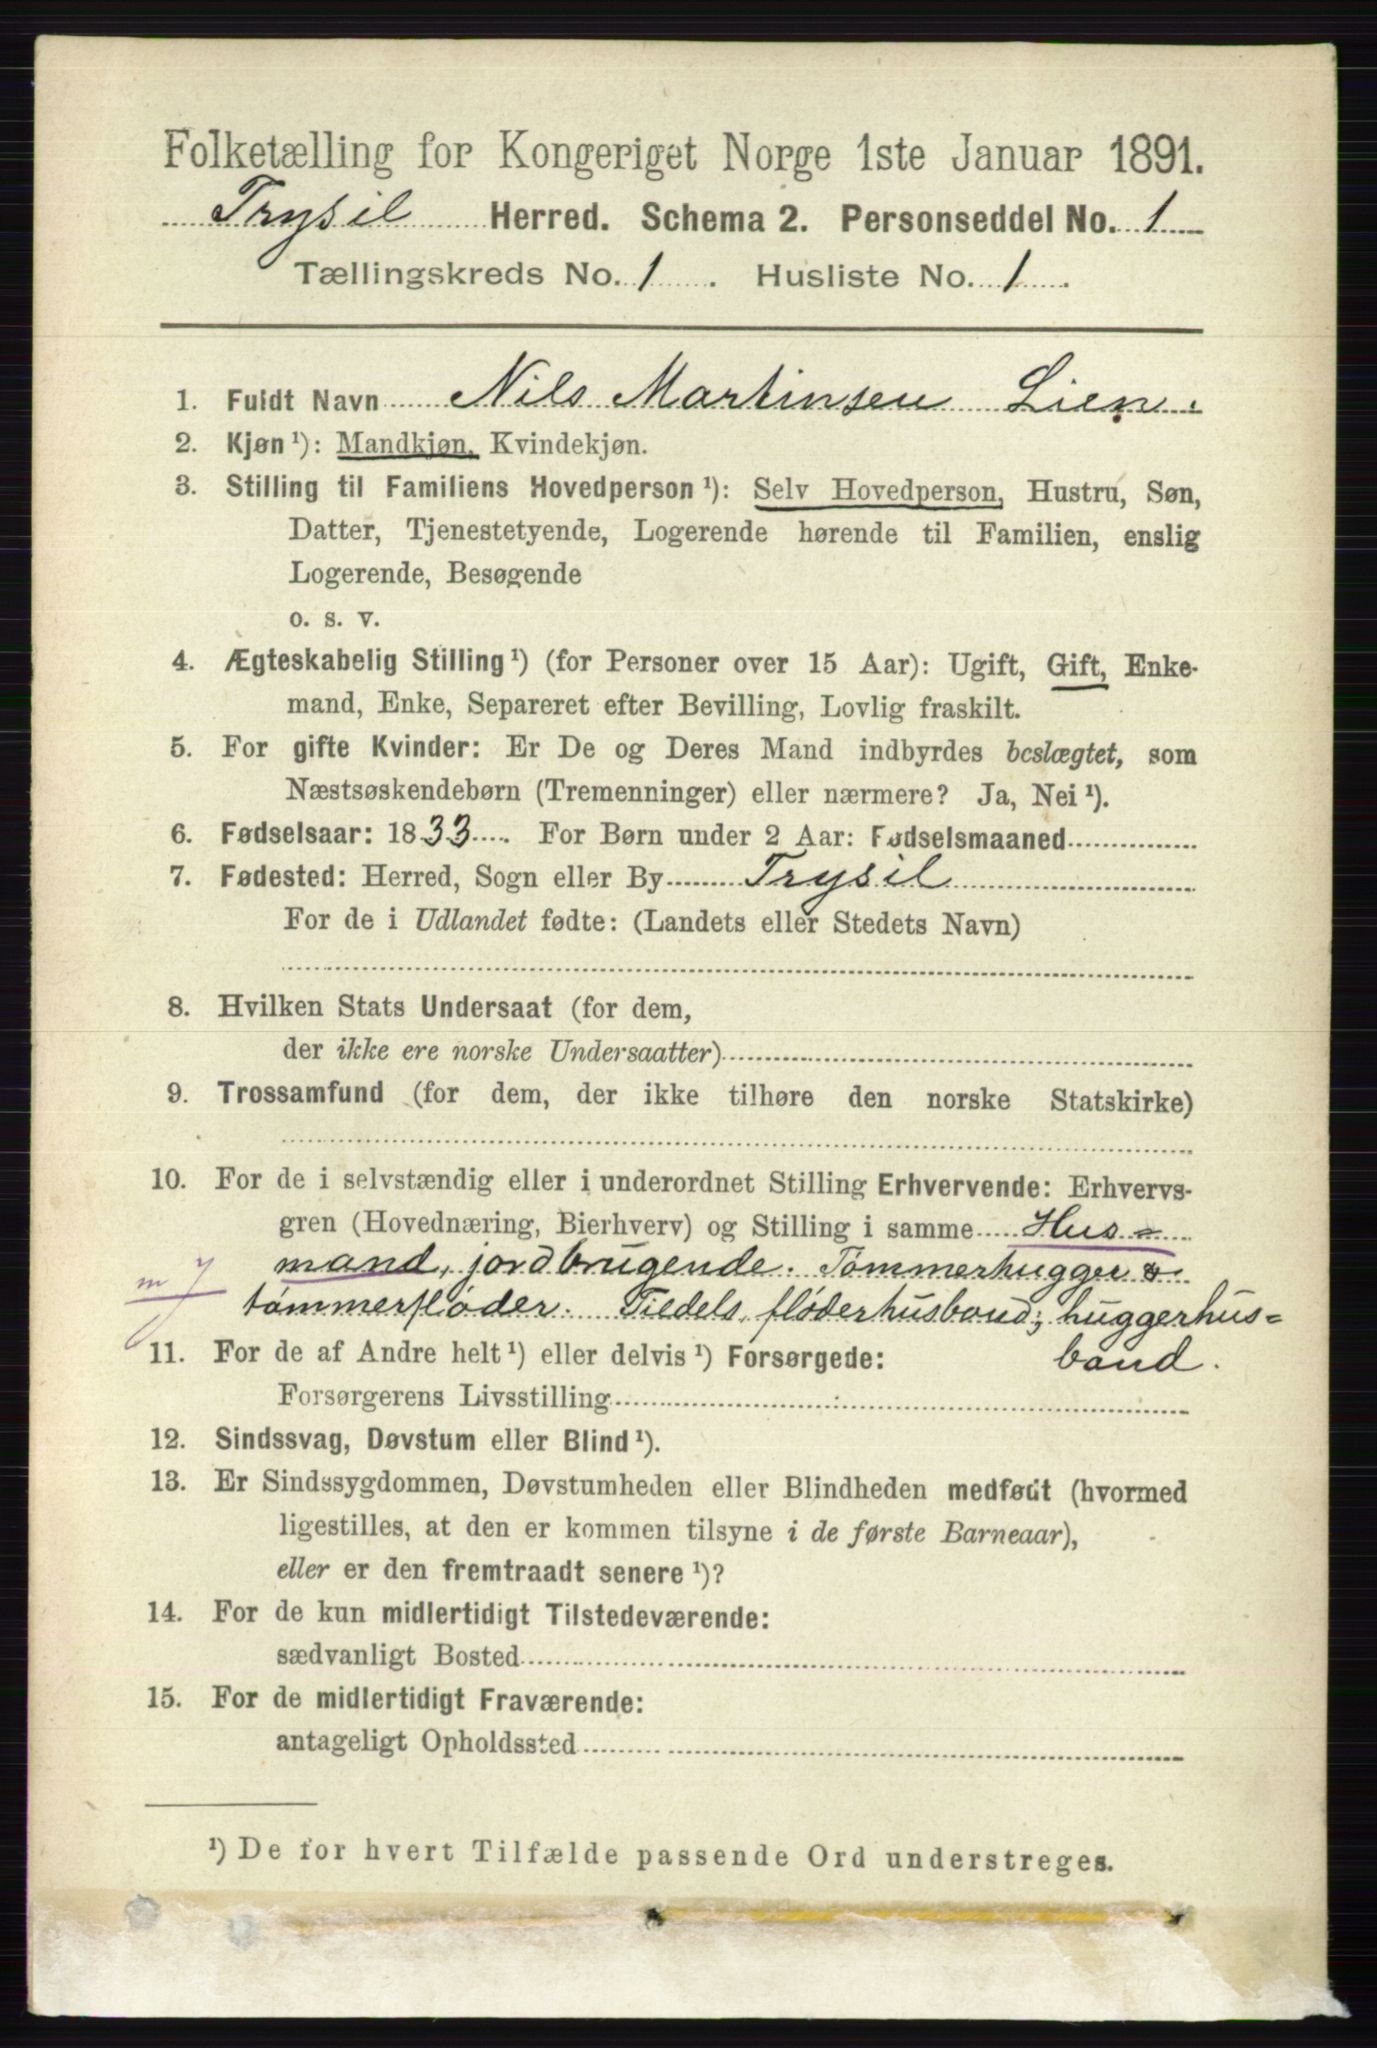 Folketælling for Kongeriget Norge 1ste Januar 1891.
Trysil Herred. Schema 2. Personseddel No. 1
Tællingskreds No. 1. Husliste No. 1.
1. Fuldt Navn Nils Martinsen Lien.
2. Kjøn ¹): Mandkjøn, Kvindekjøn.
3. Stilling til Familiens Hovedperson ¹): Selv Hovedperson, Hustru, Søn,
Datter, Tjenestetyende, Logerende hørende til Familien, enslig
Logerende, Besøgende
o. s. v.
4. Ægteskabelig Stilling ¹) (for Personer over 15 Aar): Ugift, Gift, Enke-
mand, Enke, Separeret efter Bevilling, Lovlig fraskilt.
5. For gifte Kvinder: Er De og Deres Mand indbyrdes beslægtet, som
Næstsøskendebørn (Tremenninger) eller nærmere? Ja, Nei ¹).
6. Fødselsaar: 1833. For Børn under 2 Aar: Fødselsmaaned
7. Fødested: Herred, Sogn eller By Trysil
For de i Udlandet fødte: (Landets eller Stedets Navn)
8. Hvilken Stats Undersaat (for dem,
der ikke ere norske Undersaatter)
9. Trossamfund (for dem, der ikke tilhøre den norske Statskirke)
10. For de i selvstændig eller i underordnet Stilling Erhvervende: Erhvervs-
gren (Hovednæring, Bierhverv) og Stilling i samme Hus=
mand, jordbrugende. Tømmerhugger &
m 7
tømmerfløder. Tildels fløderhusbond; huggerhus=
11. For de af Andre helt ¹) eller delvis ¹) Forsørgede: bond.
Forsørgerens Livsstilling
12. Sindssvag, Døvstum eller Blind ¹).
13. Er Sindssygdommen, Døvstumheden eller Blindheden medfødt (hvormed
ligestilles, at den er kommen tilsyne i de første Barneaar),
eller er den fremtraadt senere ¹)?
14. For de kun midlertidigt Tilstedeværende:
sædvanligt Bosted
15. For de midlertidigt Fraværende:
antageligt Opholdssted
¹) De for hvert Tilfælde passende Ord understreges.